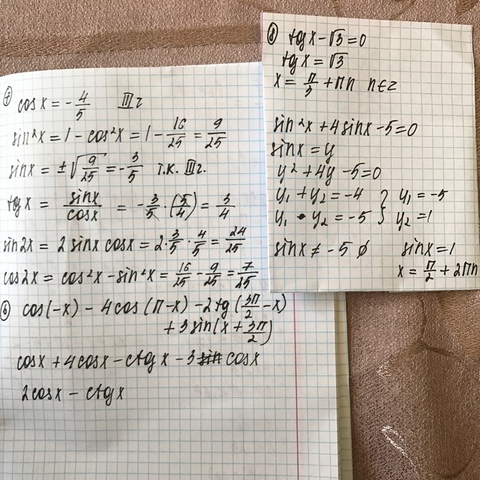 ⑦ cos x = -4/5   III ч
sin²x = 1 - cos²x = 1 - 16/25 = 9/25
sin x = ±√(9/25) = -3/5  т.к. III ч.
tg x = sin x/cos x = -3/5 · (5/4) = 3/4
sin 2x = 2 sin x cos x = 2 · 3/5 · 4/5 = 24/25
cos 2x = cos²x - sin²x = 16/25 - 9/25 = 7/25
⑥ cos(-x) - 4cos(π-x) - 2tg(3π/2 - x)
+ 3 sin(x + 3π/2)
cos x + 4cos x - ctg x - 3 cos x
2cos x - ctg x
tg x - √3 = 0
tg x = √3
x = π/3 + πn  n∈z
sin²x + 4 sin x - 5 = 0
sin x = y
y² + 4y - 5 = 0
y₁ + y₂ = -4 } y₁ = -5
y₁ · y₂ = -5 } y₂ = 1
sin x ≠ -5 ∅   sin x = 1
x = π/2 + 2πn